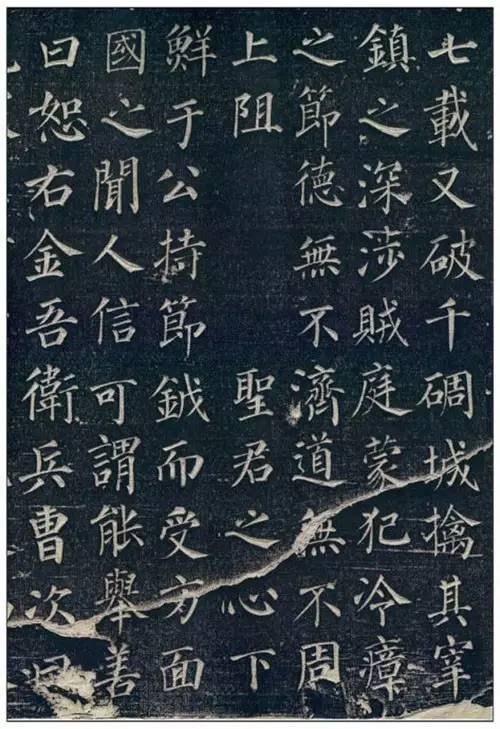 七載又破千碉城擒其宰
鎮之深涉賊庭蒙犯冷瘴
之節德無不濟道無不周
上阻聖君之心下
鮮于公持節鉞而受方面
國之聞人信可謂能舉善
曰恕右金吾衛兵曹次曰